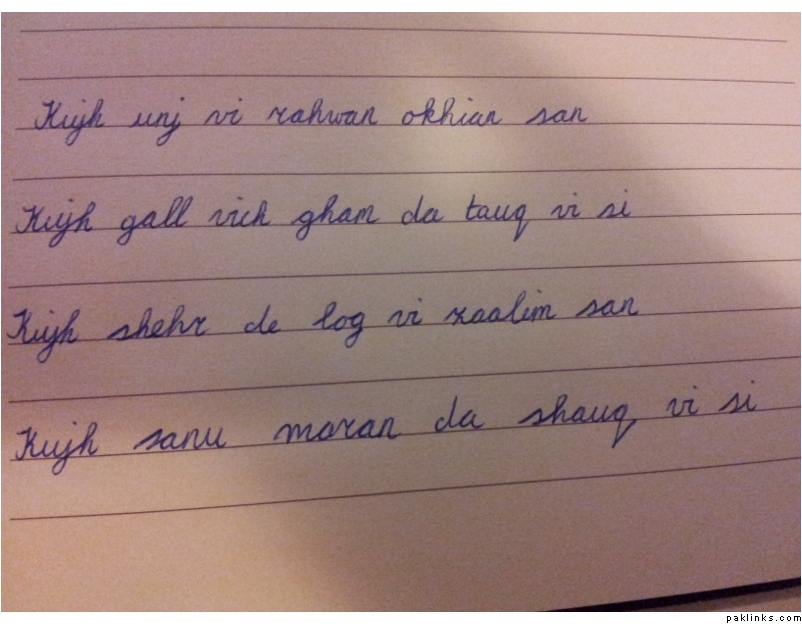 Kujh unj vi rahwan okhian san
Kujh gall vich gham da tauq vi si
Kujh shehr de log vi zaalim san
Kujh sanu maran da shauq vi si
paklinks.com